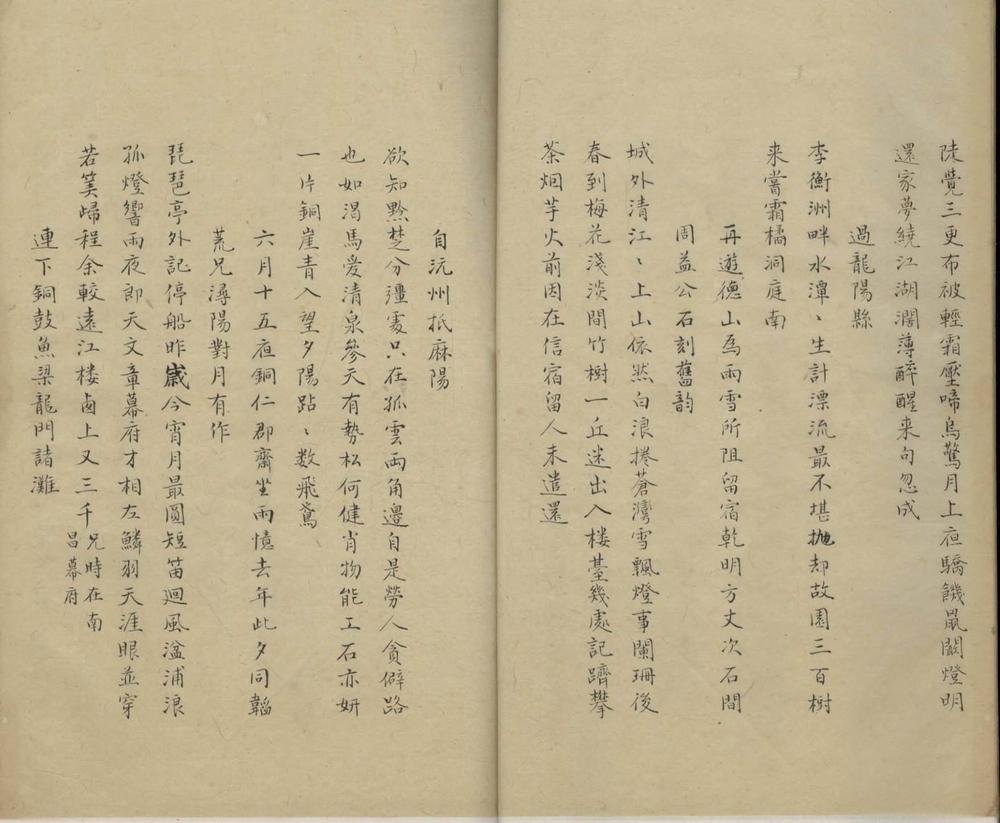 陡覺三更布被輕霜壓啼烏驚月上夜驕饑鼠闞燈明
還家夢繞江湖濶薄醉醒来句忽成
過龍陽縣
李衡洲畔水潭〻生計漂流最不堪抛却故園三百樹
来嘗霜橘洞庭南
再遊德山為雨雪所阻留宿乾明方丈次石間
周益公石刻舊韵
城外清江〻上山依然白浪捲蒼灣雪飄燈事闌珊後
春到梅花淺淡間竹樹一丘迷出入楼䑓幾處記躋攀
茶烟芋火前因在信宿留人未遣還
自沅州抵麻陽
欲知黔楚分疆處只在孤雲兩角邊自是勞人貪僻路
也如渴馬愛清泉參天有勢松何健肖物能工石亦妍
一片銅崖青入望夕陽跕〻数飛鳶
六月十五夜銅仁郡齋坐雨憶去年此夕同韜
荒兄潯陽對月有作
琵琶亭外記停船昨歲今宵月最圓短笛迴風湓浦浪
孤燈響雨夜郎天文章幕府才相左鱗羽天涯眼並穿
若筭歸程余較遠江楼鹵上又三千兄時在南
昌幕府
連下銅鼓魚梁龍門諸灘